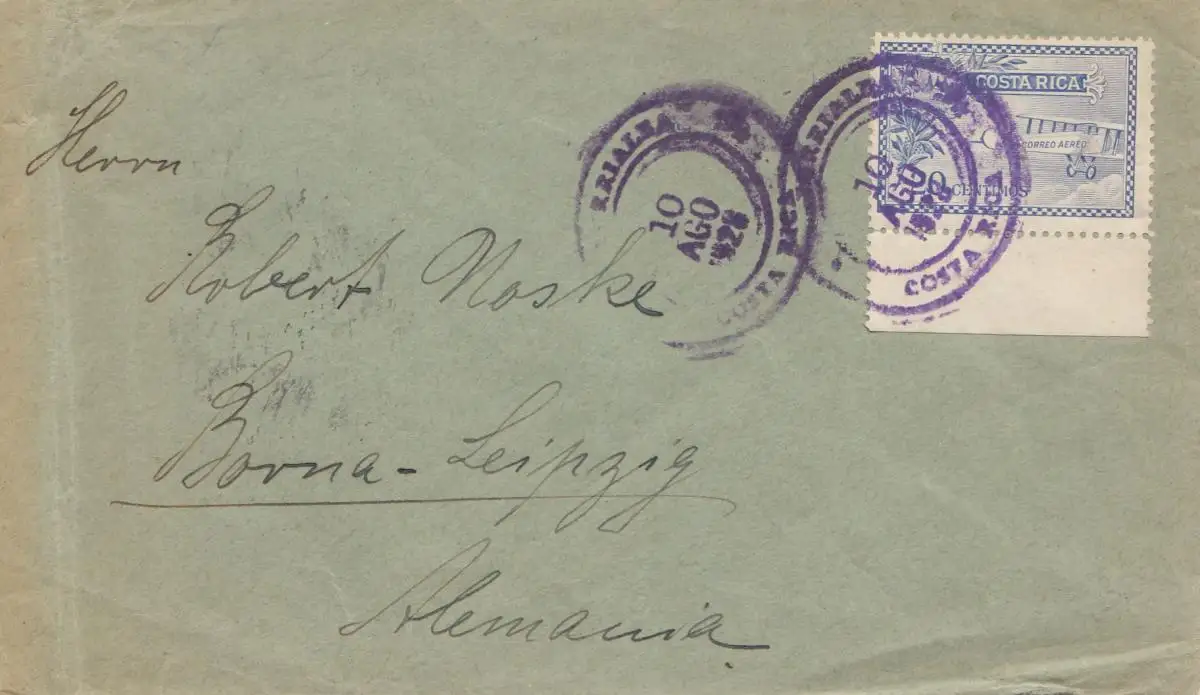 Herrn
Robert Noske
Borna-Leipzig
Alemania
COSTA RICA
CORREO AEREO
CENTIMOS
RRIALBA
10
AGO
1928
COSTA RICA
RRIALBA
10
AGO
COSTA RICA